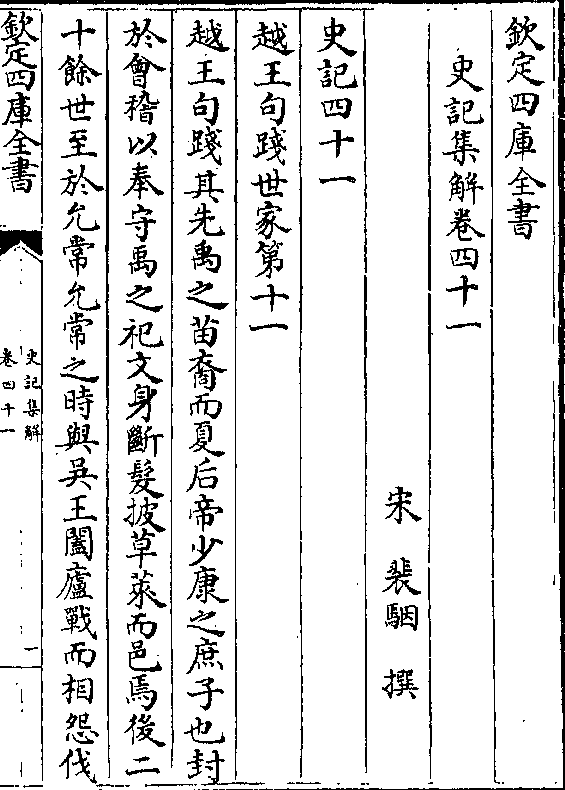 欽定四庫全書
史記集解卷四十一
宋 裴駰 撰
史記四十一
越王句踐世家第十一
越王句踐其先禹之苗裔而夏后帝少康之庶子也封
於會稽以奉守禹之祀文身斷髮披草萊而邑焉後二
十餘世至於允常允常之時與吳王闔廬戰而相怨伐
欽定四庫全書
史記集解
卷四十一
一